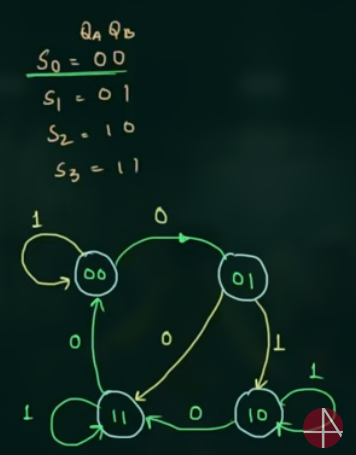 QA QB
S0 = 00
S1 = 01
S2 = 10
S3 = 11
1
0
00
01
0
0
1
1
1
11
0
10